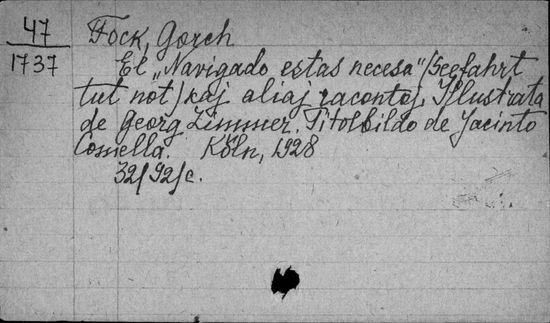 47
1737
Fock, Gorch
El „Navigado estas necesa" (Seefahrt
tut not) kaj aliaj racontoj. Illustrata
de Georg Zimmer. Titolbildo de Jacinto
Comella. Köln, 1928
32/92/c.